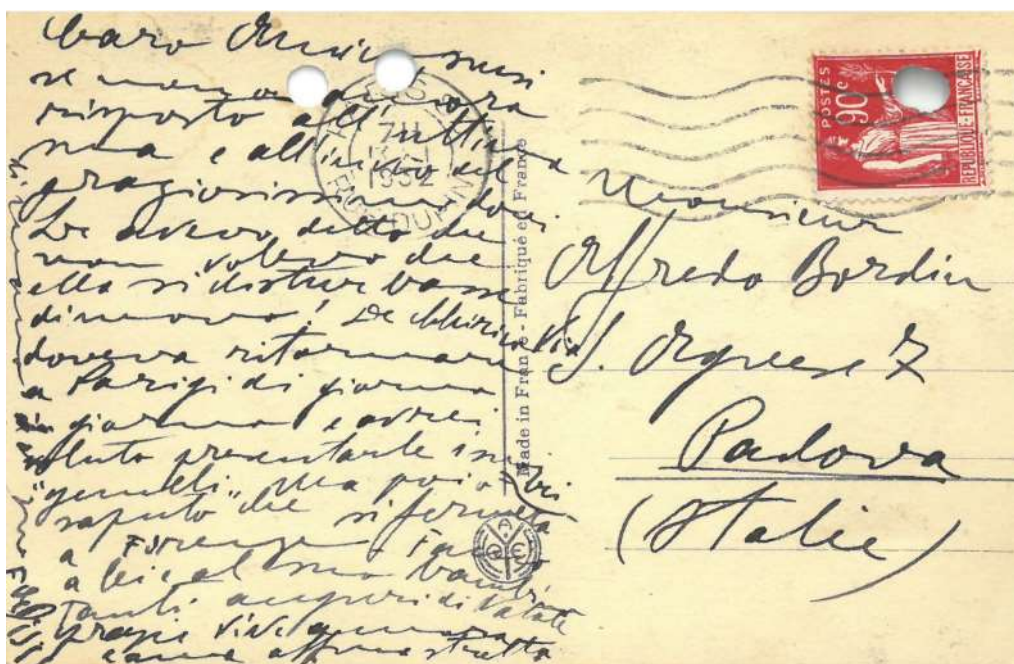 Caro Amico, scusi
se non ho ancora
risposto all'ultima
sua e all'invio del
graziosissimo
Le avevo detto che
non volevo che
ella si disturbasse
di nuovo! De Chirico
doveva ritornare
a Parigi di giorno
in giorno e avrei
voluto presentarle i suoi
"gemelli" ma poi ho
saputo che si fermava
a Firenze. Faccio
a lei e al suo bambino
tanti auguri di Natale
grazie vive ancora
e una affma stretta
1932
POSTES
90c
REPUBLIQUE · FRANÇAISE
Made in France - Fabriqué en France
Monsieur
Alfredo Bordin
Via S. Agnese 7
Padova
(Italie)